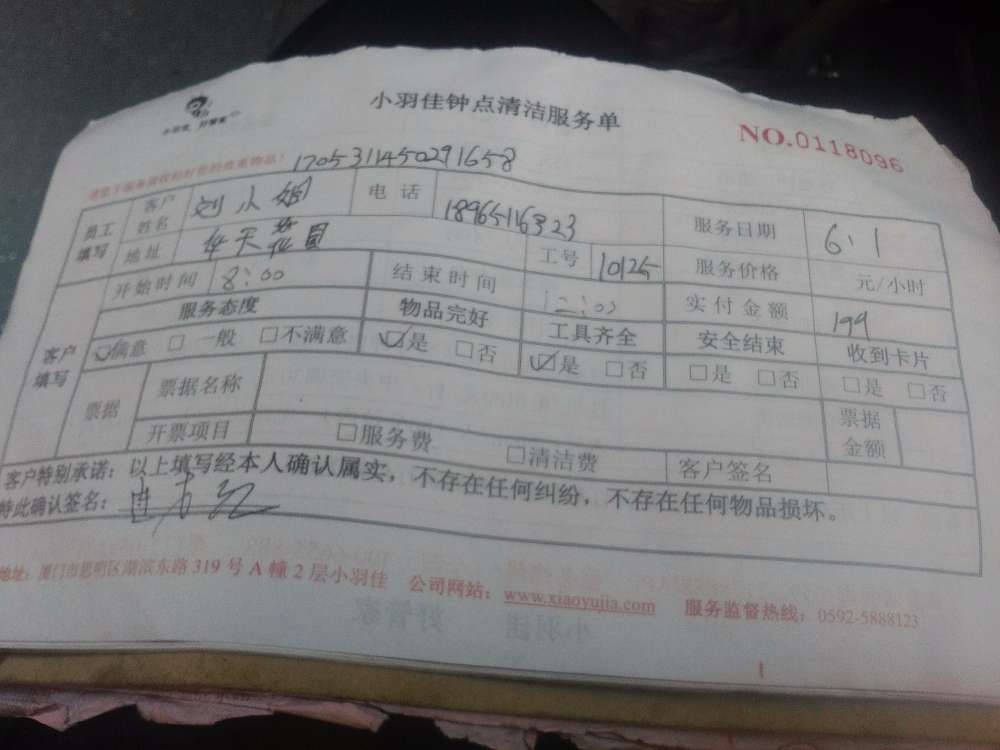 小羽佳钟点清洁服务单
小羽佳 好管家
NO.0118096
1705311450291658
员工填写 客户姓名 刘小姐 电话 18965116323 服务日期 6:1
地址 花园 工号 10125 服务价格 元/小时
客户填写 开始时间 8:00 结束时间 12:00 实付金额 199
服务态度 物品完好 工具齐全 安全结束 收到卡片
☑满意 □一般 □不满意 ☑是 □否 ☑是 □否 □是 □否 □是 □否
票据 票据名称 票据金额
开票项目 □服务费 □清洁费 客户签名
客户特别承诺:以上填写经本人确认属实,不存在任何纠纷,不存在任何物品损坏。
特此确认签名:
地址:厦门市思明区湖滨东路319号A幢2层小羽佳 公司网站:www.xiaoyujia.com 服务监督热线:0592-5888123
1